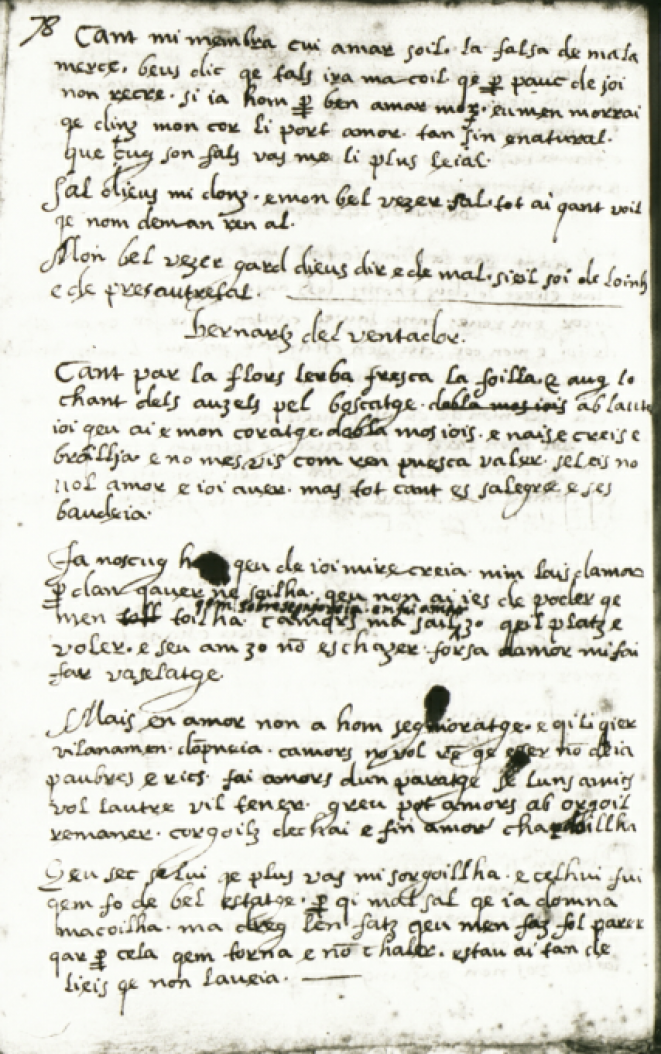 78 Cant mi membra cui amar soil. la falsa de mala
merce. beus dic qe tals ira macoil qe ꝑ pauc de joi
non recre. si ia hom ꝑ ben amar mor. eu men morrai
qe dinz mon cor li port amor. tan fin enatural.
que tug son fals vas me li plus leial.
Sal dieus mi donz. emon bel vezer sal. tot ai qant voil
qe nom deman ren al.
Mon bel vezer gard dieus dir e de mal. sieil soi de loinh
e de pres autretal.
bernartz del ventador.
Cant par la flors lerba fresca la foilla. e aug lo
chant dels auzels pel boscatge. dobla mos iois ab laute
ioi qeu ai e mon coratge. dobla mos iois. e nais e creis e
broillia. e no mes vis com ren puesca valer. seleis no
vol amor e ioi aver. mas tot cant es salegre. e ses
baudeia.
Ja noscug qeu de ioi mire creia. nim lais damor
ꝑ dan qaver ne soilha. qeu non ai ies de poder qe
men toll toilha. camors ma sailz zo qeil platz e
voler. e seu am zo nō eschazer. forsa damor mi fai
far vaselatge.
Mais en amor non a hom segnioratge. e qi li qier
vilanamen. dōpneia. camors no vol rē qe eser nō deia
paubres e rics. fai amors dun paratge se luns amics
vol lautre vil tener. greu pot amors ab orgoil
remaner. corgoilz dechai e fin amor
Qeu sec selui qe plus vas mi sorgoillha. e celhui fui
qem fo de bel estatge. ꝑ qi mal sal qe ia domna
macoilha. ma dreg len fatz qeu men faz fol parer
qar ꝑ cela qem torna e nō chaler. estau ai tan de
lieis qe non laveia.